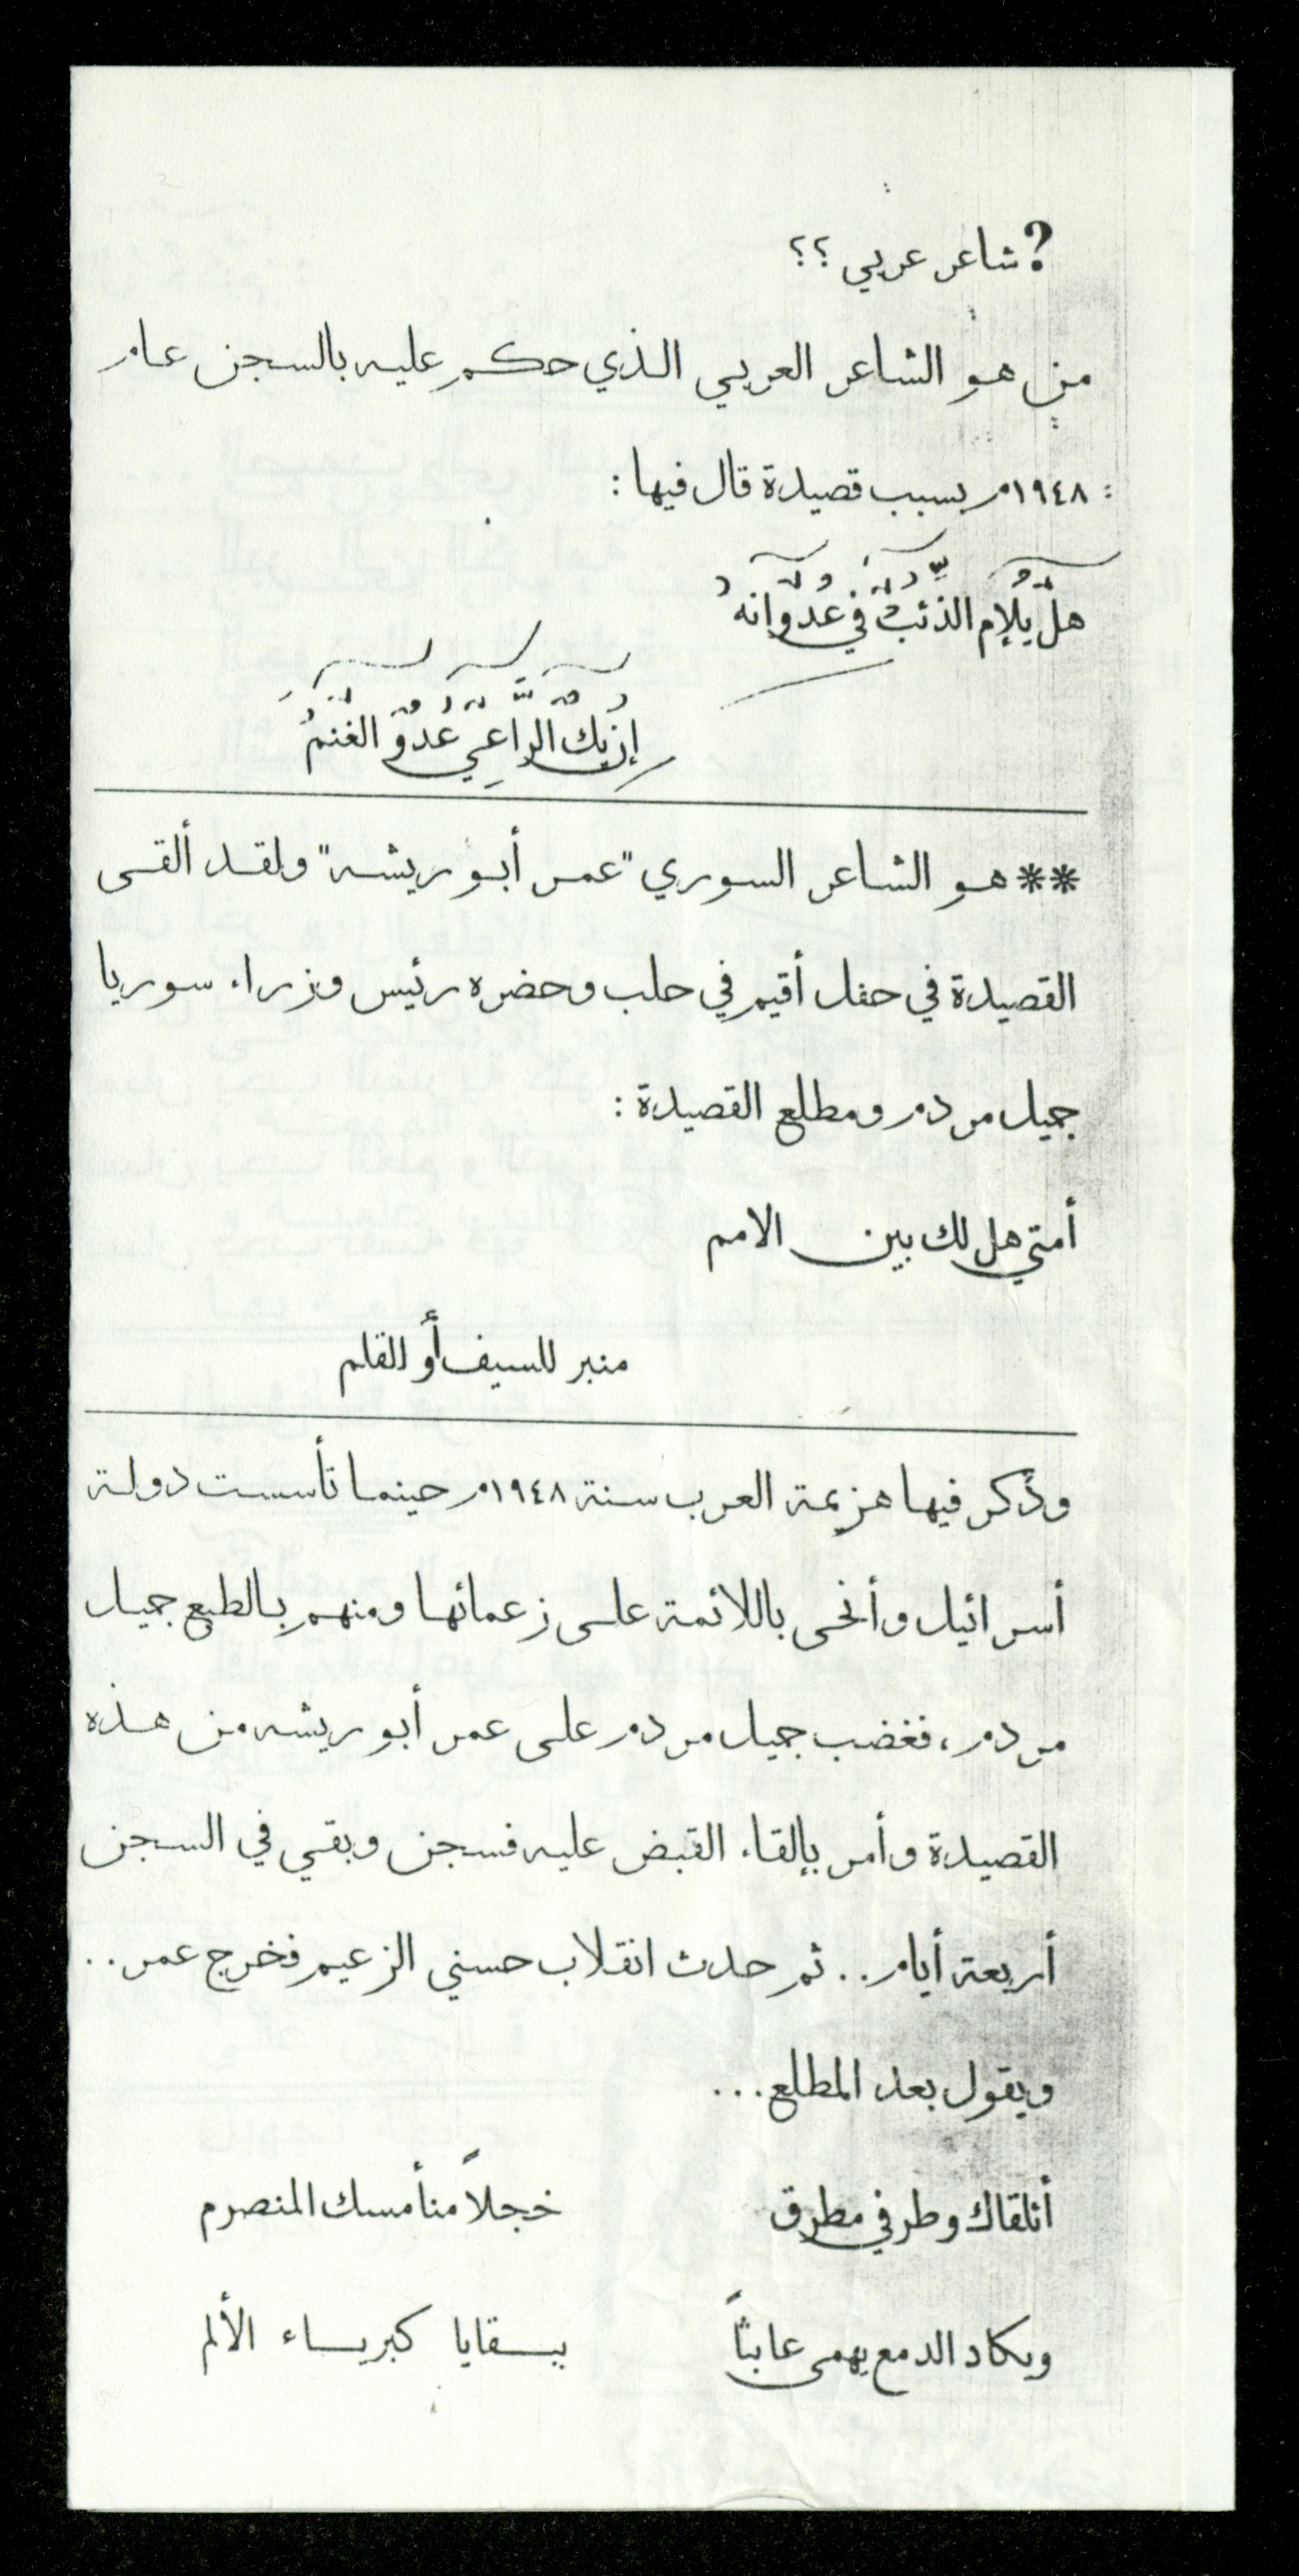 ? شاعر عربي ؟؟
من هو الشاعر العربي الذي حكم عليه بالسجن عام
١٩٤٨م بسبب قصيدة قال فيها :
هل يلام الذئب في عدوانه
إن يك الراعي عدو الغنم
** هو الشاعر السوري "عمر أبو ريشه" ولقد ألقى
القصيدة في حفل أقيم في حلب وحضره رئيس وزراء سوريا
جميل مردم ومطلع القصيدة :
أمتي هل لك بين الامم
منبر للسيف أو للقلم
وذكر فيها هزيمة العرب سنة ١٩٤٨م حينما تأسست دولة
أسرائيل وأنحى باللائمة على زعمائها ومنهم بالطبع جميل
مردم، فغضب جميل مردم على عمر أبو ريشه من هذه
القصيدة وأمر بإلقاء القبض عليه فسجن وبقي في السجن
أربعة أيام .. ثم حدث انقلاب حسني الزعيم فخرج عمر ..
ويقول بعد المطلع ...
أتلقاك وطرفي مطرق خجلاً من أمسك المنصرم
ويكاد الدمع يهمي عابثاً ببقايا كبرياء الألم